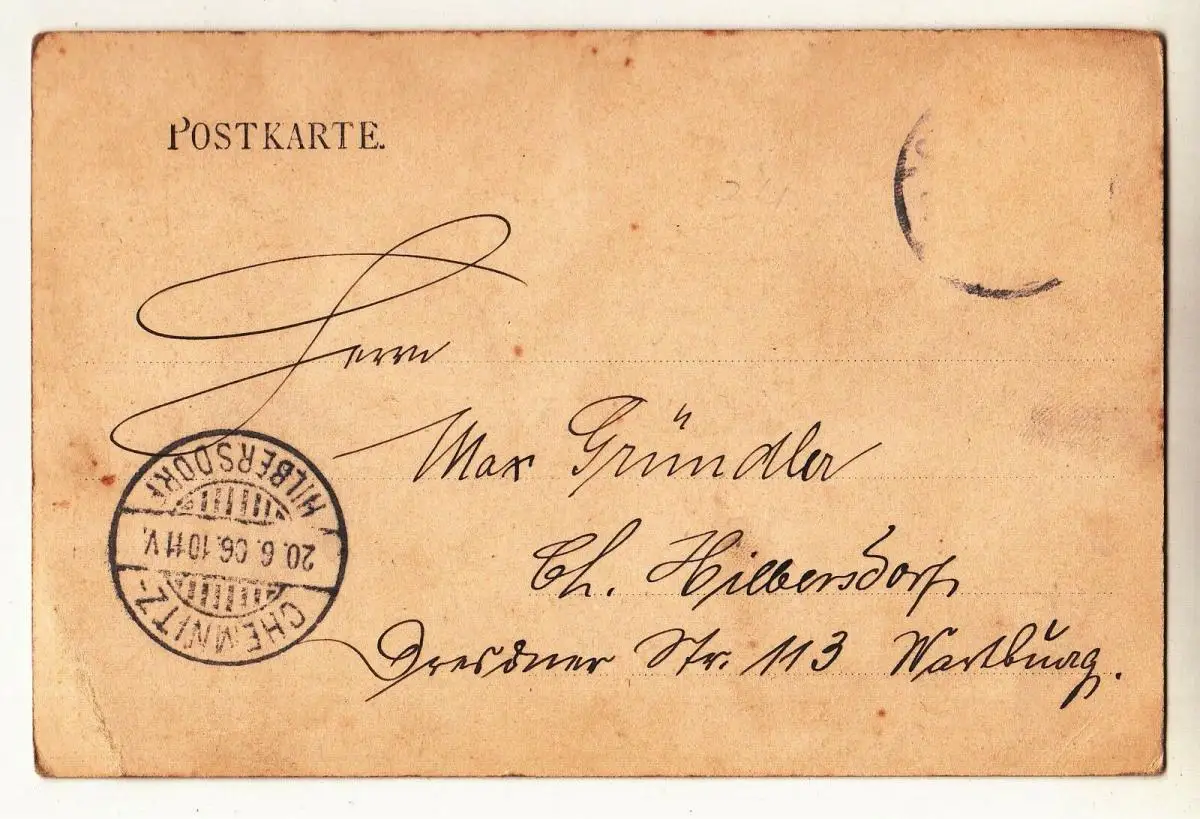 POSTKARTE.
Herrn
Max Gründler
Ch. Hilbersdorf
Dresdner Str. 113 Wartburg.
CHEMNITZ-
20.6.06.10-11V.
HILBERSDORF